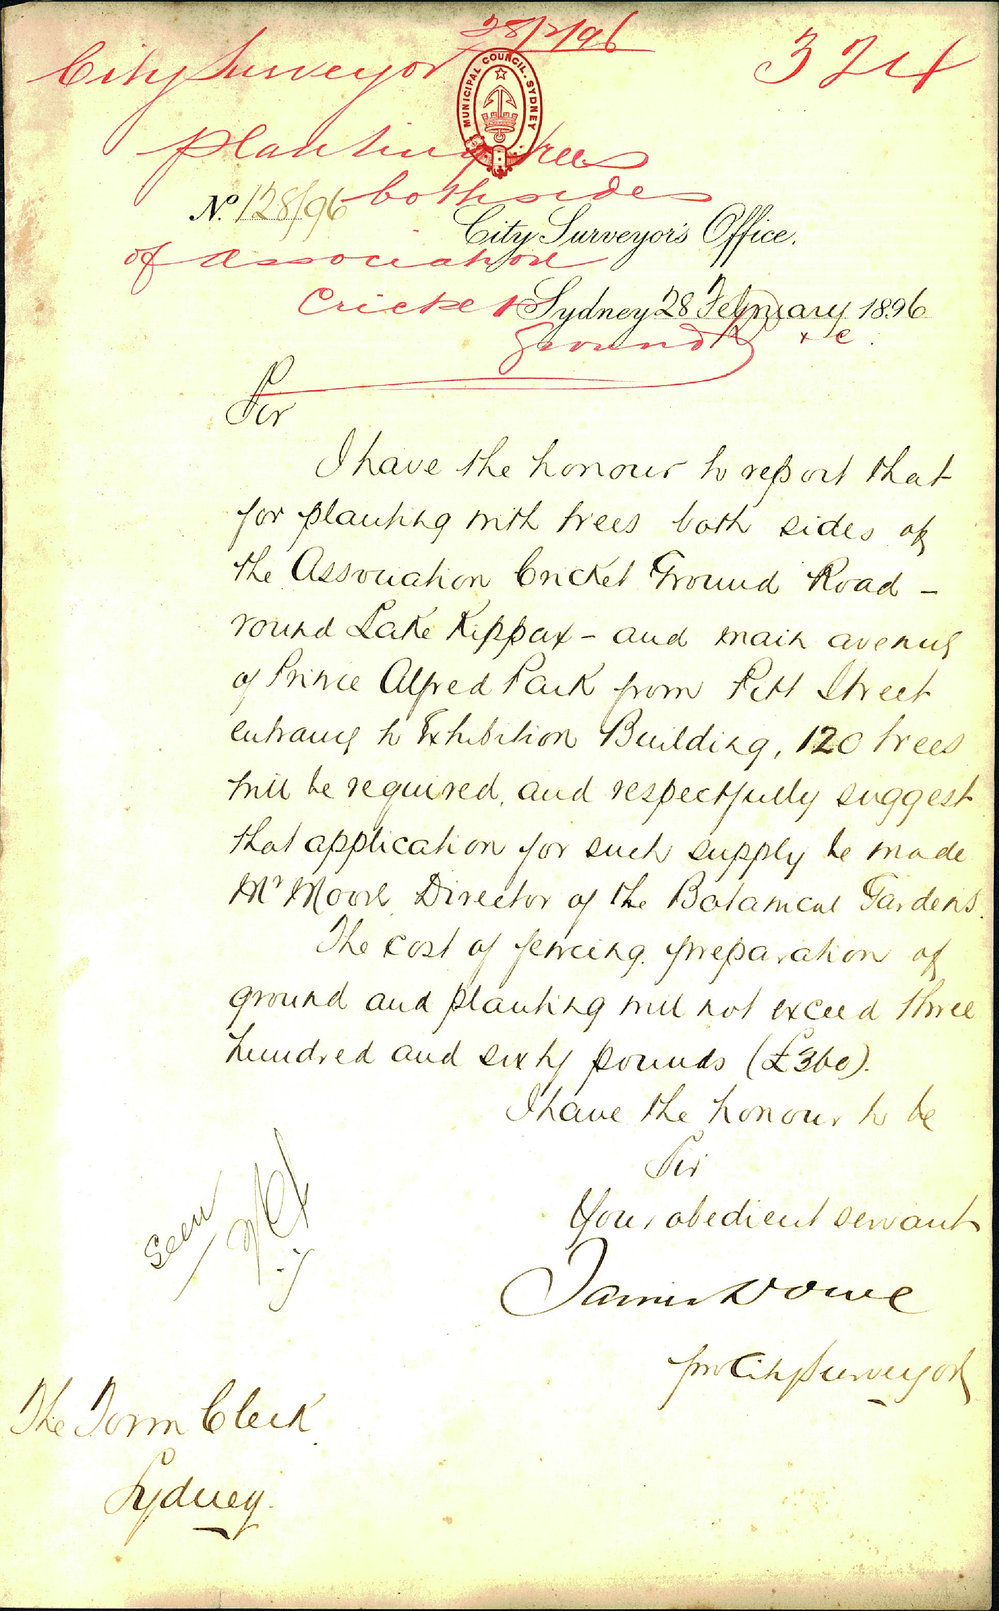 28/2/96
City Surveyor 324
MUNICIPAL COUNCIL · SYDNEY
planting trees
both sides
No. 128/96
City Surveyor's Office.
of association
Cricket
Sydney 28 February 1896
Ground Rd &c.
Sir
I have the honour to report that
for planting with trees both sides of
the Association Cricket Ground Road –
round Lake Kippax – and main avenue
of Prince Alfred Park from Pitt Street
entrance to Exhibition Building, 120 trees
will be required, and respectfully suggest
that application for such supply be made
Mr Moore Director of the Botanical Gardens.
The cost of fencing, preparation of
ground and planting will not exceed three
hundred and sixty pounds (£360).
I have the honour to be
Sir
Your obedient servant
Seen
James
for City Surveyor
The Town Clerk
Sydney.